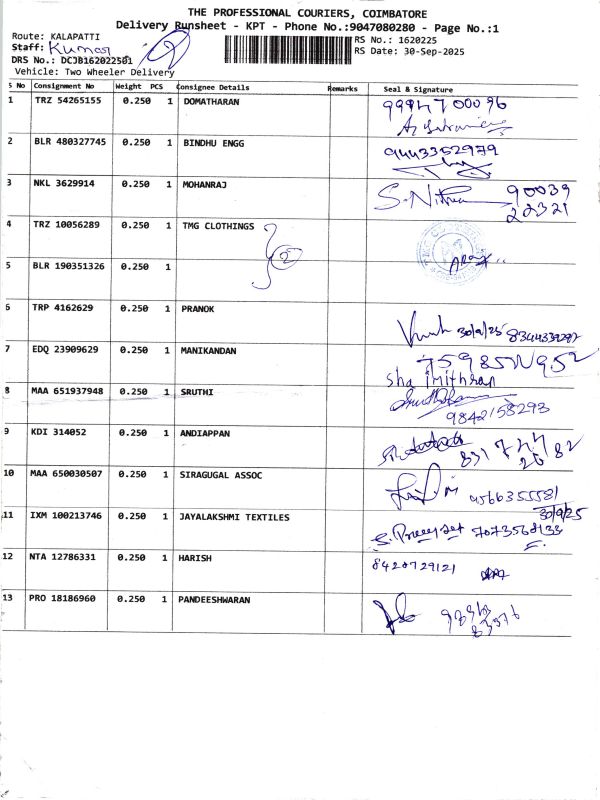 THE PROFESSIONAL COURIERS, COIMBATORE
Delivery Runsheet - KPT - Phone No.:9047080280 - Page No.:1
Route: KALAPATTI
Staff: Kumar
RS No.: 1620225
DRS No.: DCJB162022501
RS Date: 30-Sep-2025
Vehicle: Two Wheeler Delivery
S No Consignment No Weight PCS Consignee Details Remarks Seal & Signature
1 TRZ 54265155 0.250 1 DOMATHARAN 99947 00096
2 BLR 480327745 0.250 1 BINDHU ENGG 9443352979
3 NKL 3629914 0.250 1 MOHANRAJ S.Nithya 90039
22321
4 TRZ 10056289 0.250 1 TMG CLOTHINGS 2
5 BLR 190351326 0.250 1
6 TRP 4162629 0.250 1 PRANOK 30/9/25 8344339292
7 EDQ 23909629 0.250 1 MANIKANDAN
8 MAA 651937948 0.250 1 SRUTHI 9842158293
9 KDI 314052 0.250 1 ANDIAPPAN 831744
2682
10 MAA 650030507 0.250 1 SIRAGUGAL ASSOC 9566355581
30/9/25
11 IXM 100213746 0.250 1 JAYALAKSHMI TEXTILES 7073568133
12 NTA 12786331 0.250 1 HARISH 8420729121
13 PRO 18186960 0.250 1 PANDEESHWARAN